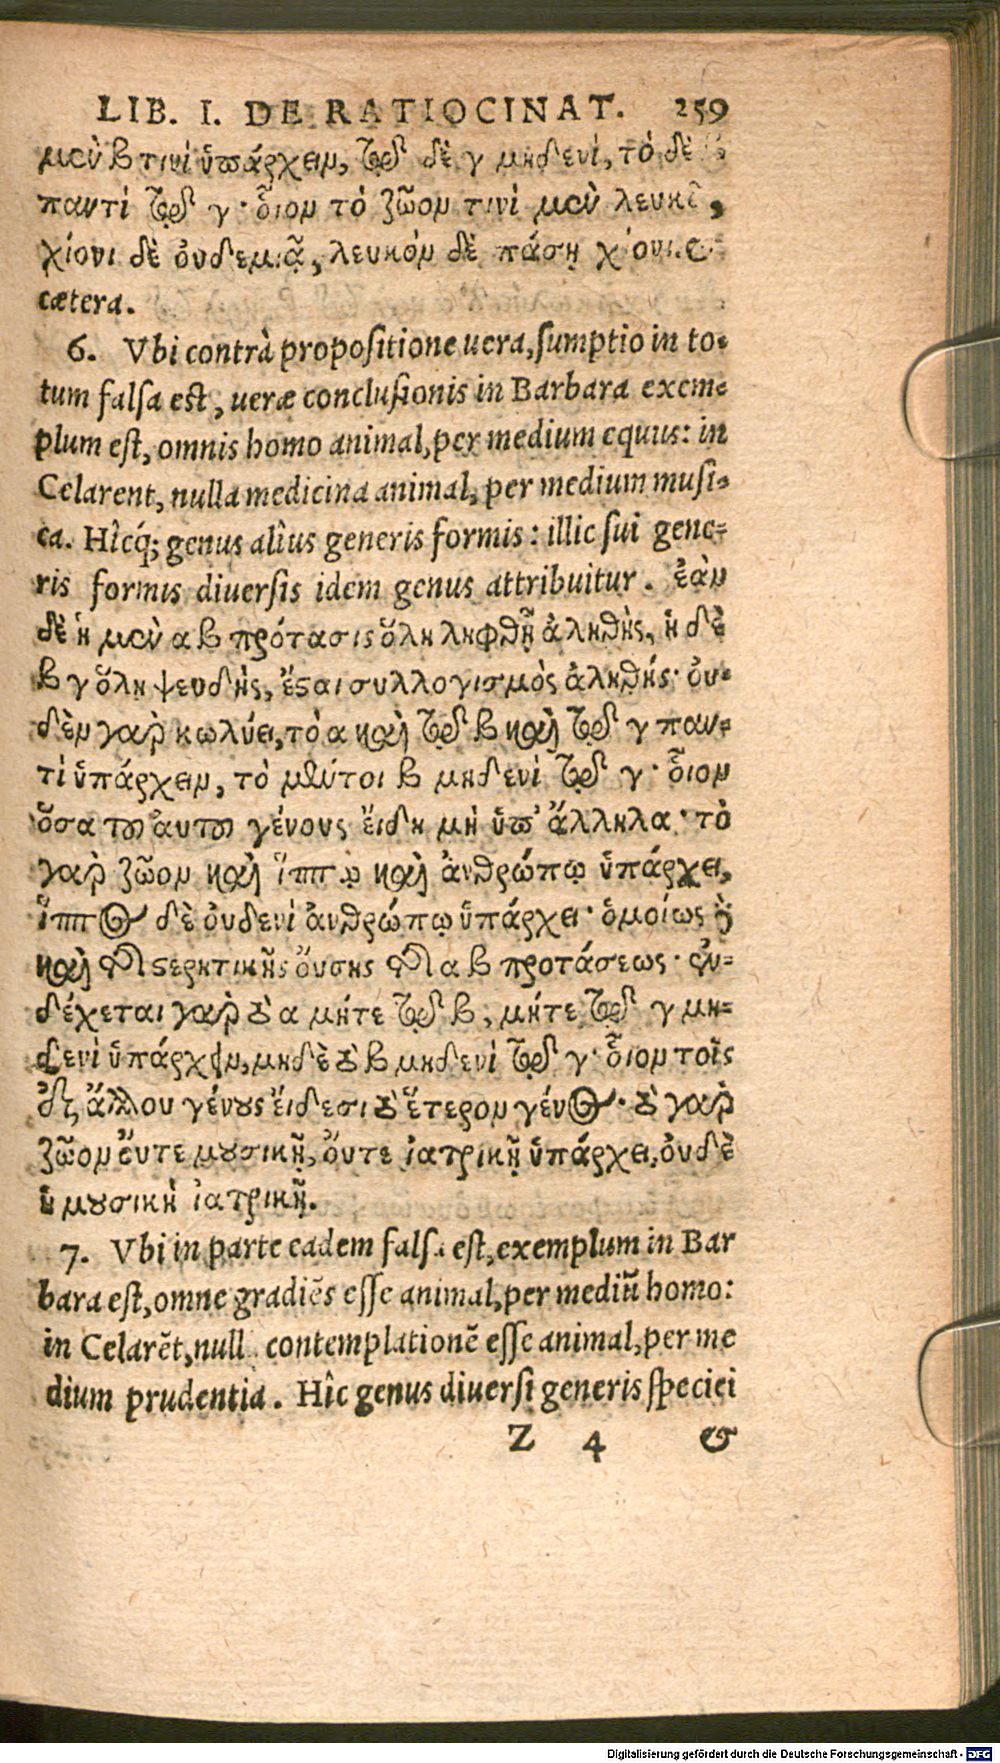 LIB. I. DE RATIOCINAT. 259
μὲν β τινὶ ὑπάρχειν, τῷ δὲ γ μηδενὶ, τὸ δὲ β
παντὶ τῷ γ· οἷον τὸ ζῶον τινὶ μὲν λευκῷ,
χίονι δὲ οὐδεμιᾷ, λευκὸν δὲ πάσῃ χίονι. &
cætera.
6. Vbi contrà propositione uera, sumptio in to-
tum falsa est, ueræ conclusionis in Barbara exem-
plum est, omnis homo animal, per medium equus: in
Celarent, nulla medicina animal, per medium musi-
ca. Hîcq́; genus alîus generis formis: illic sui gene-
ris formis diuersis idem genus attribuitur. ἐὰν
δὲ ἡ μὲν α β πρότασις ὅλη ληφθῇ ἀληθὴς, ἡ δὲ
β γ ὅλη ψευδὴς, ἔϛαι συλλογισμὸς ἀληθής· οὐ-
δὲν γαὰρ κωλύει, τὸ α καὶ τῷ β καὶ τῷ γ παν-
τὶ ὑπάρχειν, τὸ μέντοι β μηδενὶ τῷ γ· οἷον
ὅσα τοῦ αὐτοῦ γένους εἴδη μὴ ὑπ' ἄλληλα· τὸ
γὰρ ζῶον καὶ ἵππῳ καὶ ἀνθρώπῳ ὑπάρχει,
ἵππος δὲ οὐδενὶ ἀνθρώπῳ ὑπάρχει· ὁμοίως ἢ
καὶ ϛερητικῆς οὔσης τῆς α β προτάσεως· ἐν-
δέχεται γὰρ τὸ α μήτε τῷ β, μήτε τῷ γ μη-
δενὶ ὑπάρχειν, μηδὲ τὸ β μηδενὶ τῷ γ· οἷον τοῖς
ἐξ ἄλλου γένους εἴδεσι τὸ ἕτερον γένος· τὸ γὰρ
ζῶον οὔτε μουσικῇ, οὔτε ἰατρικῇ ὑπάρχει, οὐδὲ
ἡ μουσικὴ ἰατρικῇ.
7. Vbi in parte eadem falsa est, exemplum in Bar
bara est, omne gradiẽs esse animal, per mediũ homo:
in Celarẽt, null contemplationẽ esse animal, per me
dium prudentia. Hîc genus diuersi generis speciei
Z 4 &
Digitalisierung gefördert durch die Deutsche Forschungsgemeinschaft - DFG